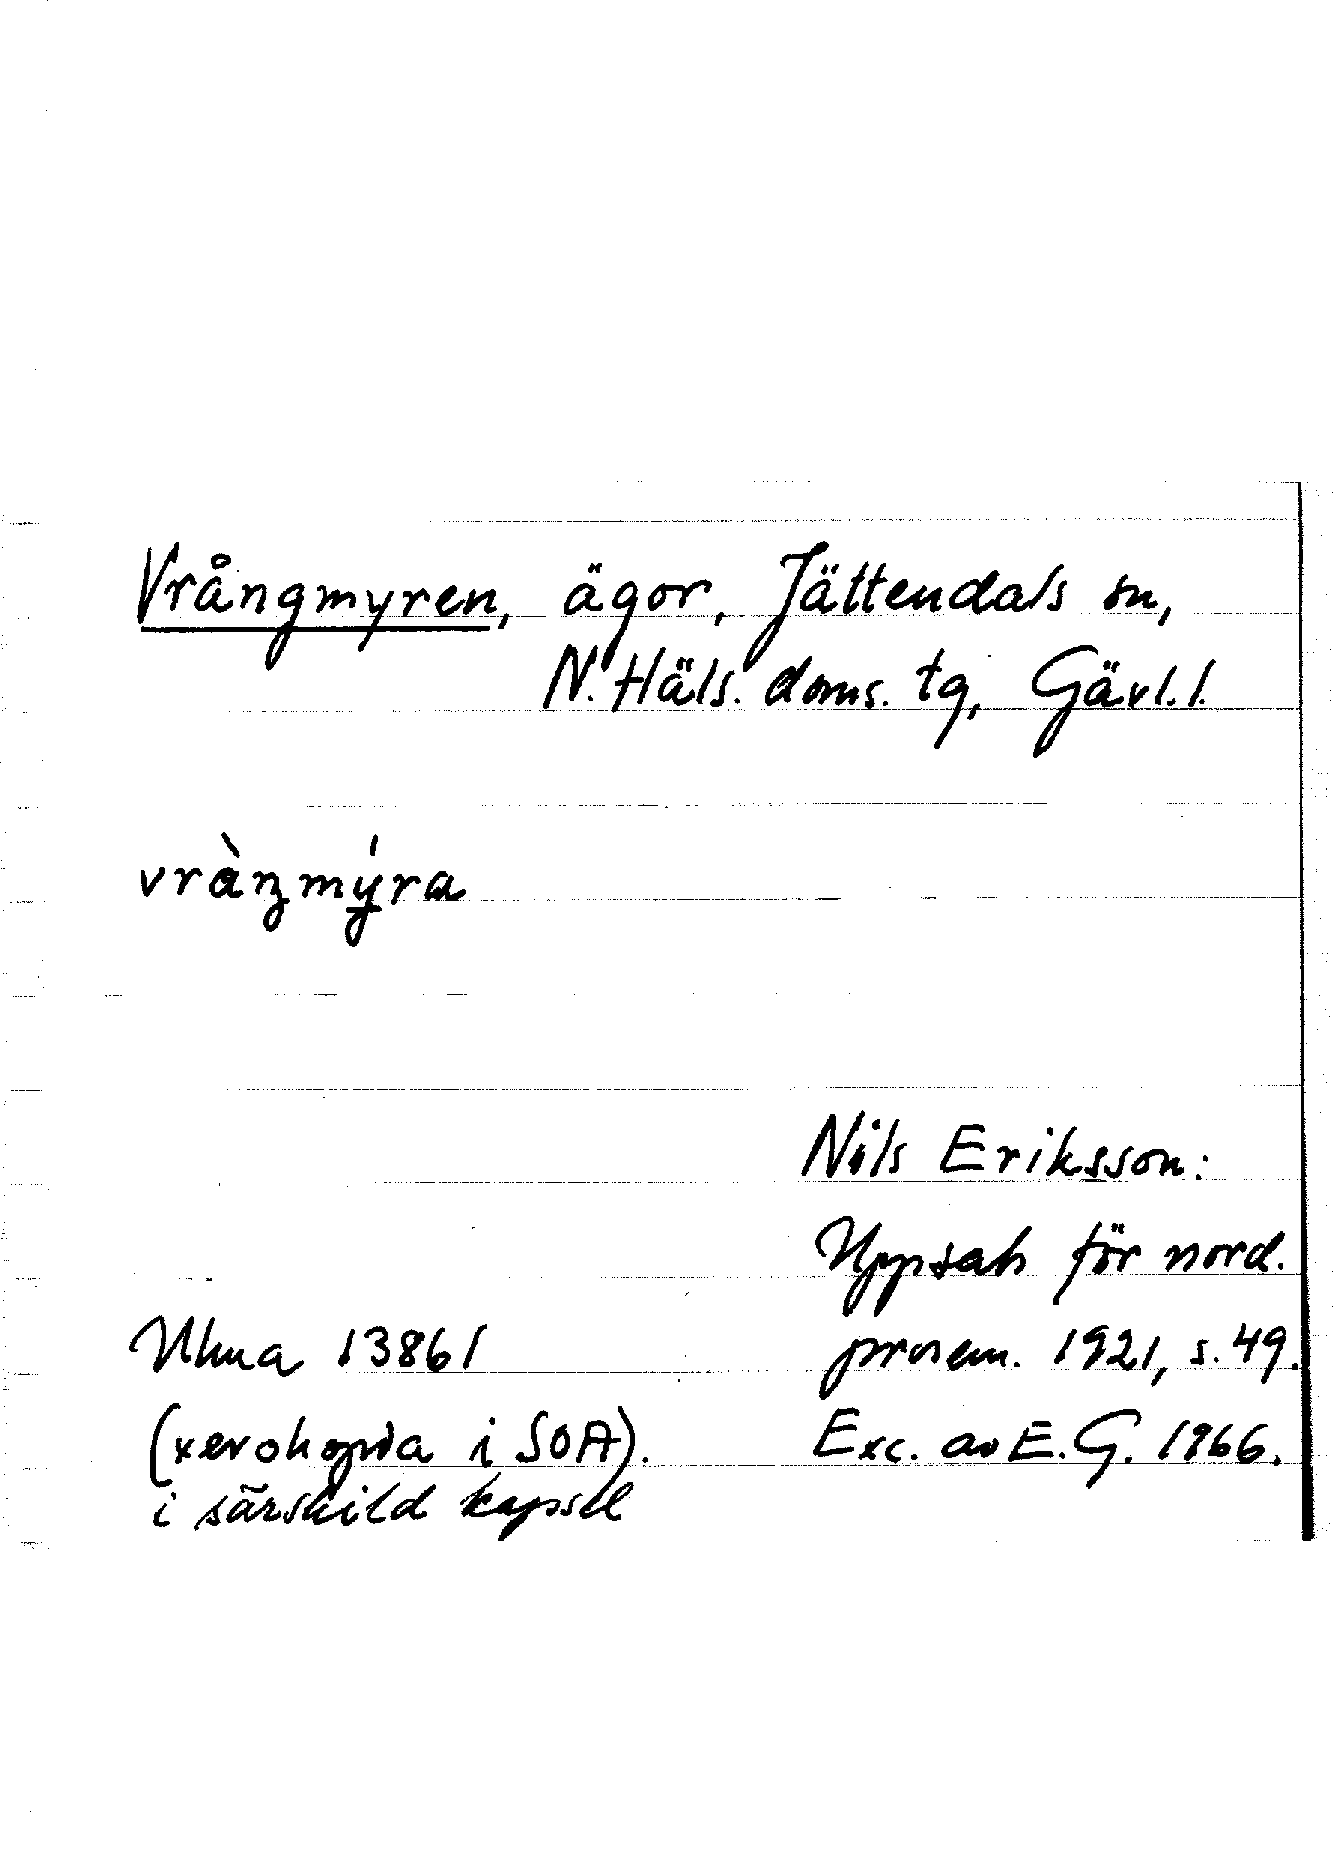 Vrångmyren, ägor, Jättendals sn,
N. Häls. doms. tg, Gävl. l.
vràŋmý̲ra
Nils Eriksson:
Uppsats för nord.
Ulma 13861 prosem. 1921, s. 49.
(xerokopia i SOA). Exc. av E.G. 1966.
i särskild kapsel